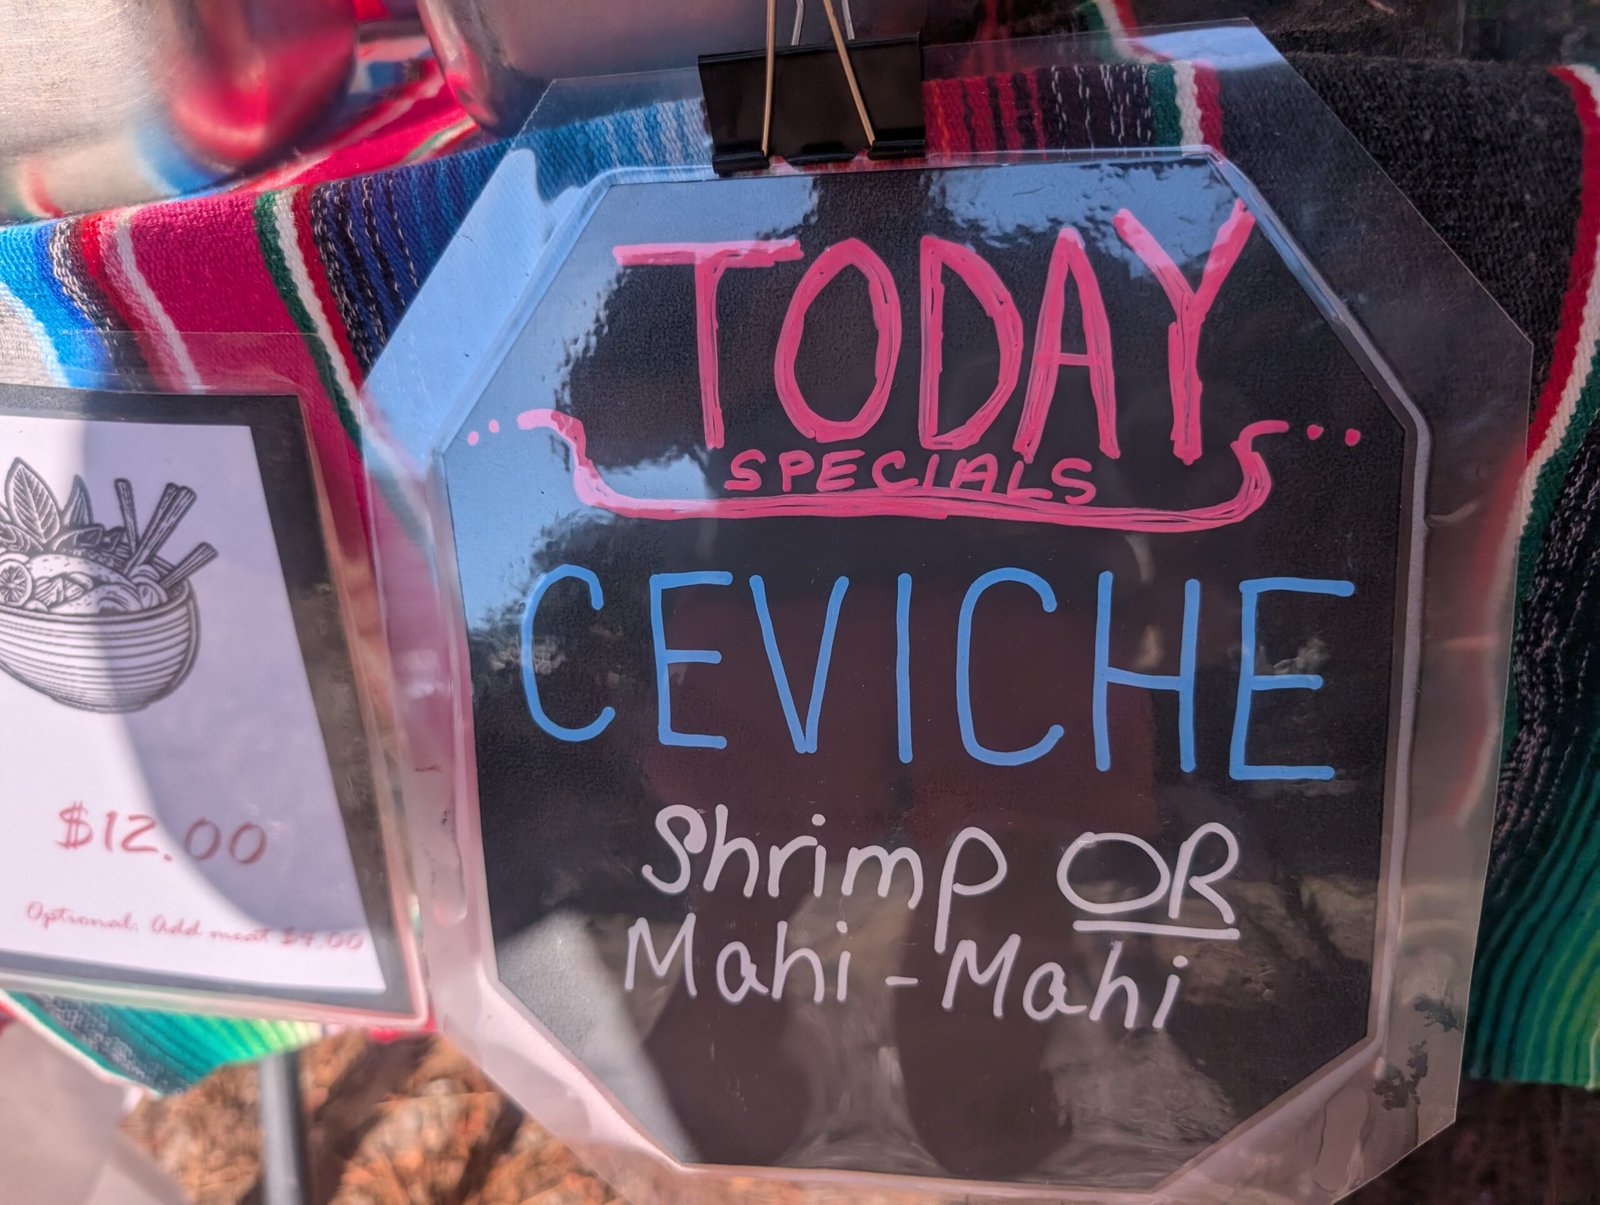 TODAY
SPECIALS
CEVICHE
Shrimp OR
Mahi-Mahi
$12.00
Optional: Add meat $4.00